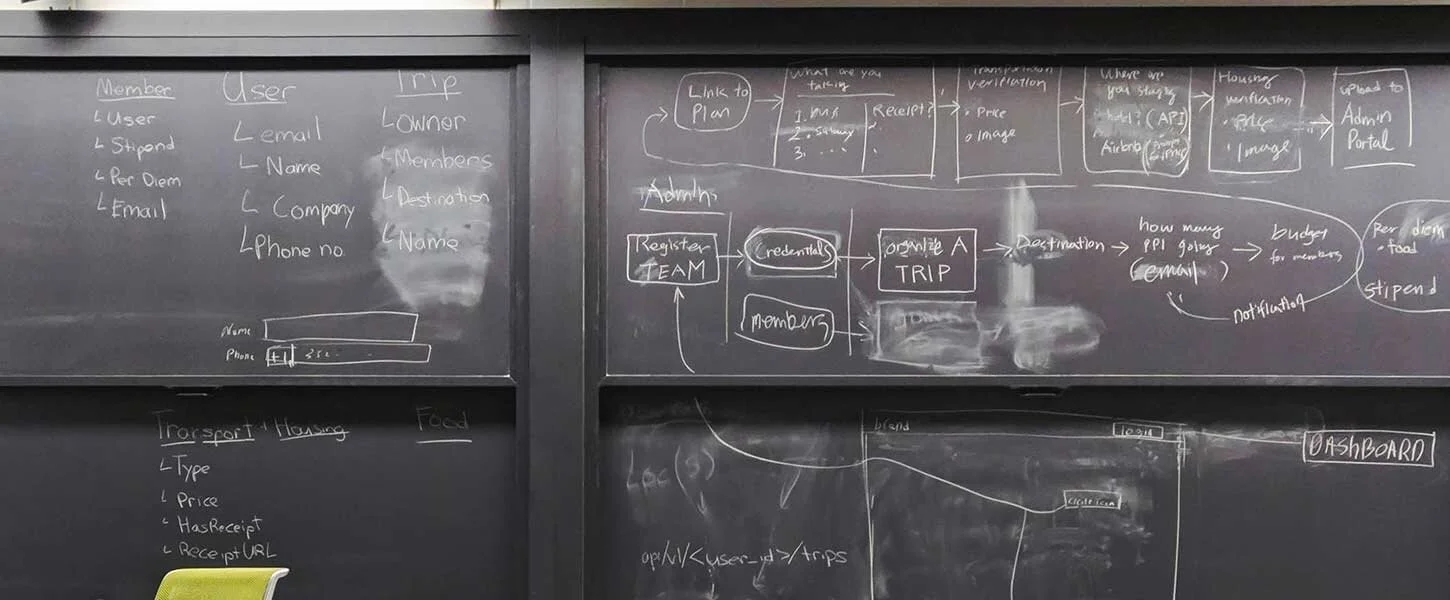 Member
User
Stipend
Per Diem
Email
User
email
Name
Company
Phone no.
Trip
owner
Members
Destination
Name
Name
Phone +1 352...
Transport + Housing
Type
Price
HasReceipt
ReceiptURL
Food
Link to
Plan
What are you
talking
1. bus
2. subway
3. ...
Receipt?
Transportation
verification
Price
Image
Where are
you staying
hotel? (API)
Airbnb
Housing
verification
Price
Image
upload to
Admin
Portal
Admins
Register
TEAM
Credentials
organize A
TRIP
Destination
how many
PPL going
(email)
budget
for members
Per diem
food
stipend
notification
members
Loc(s)
api/v1/<user_id>/trips
brand
login
DASHBOARD